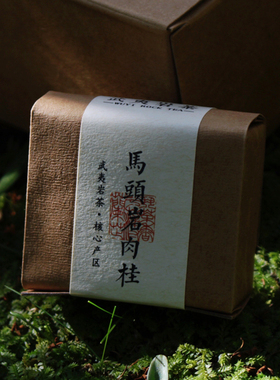 武夷岩茶
WUYI ROCK TEA
馬頭岩肉桂
武夷岩茶·核心产区